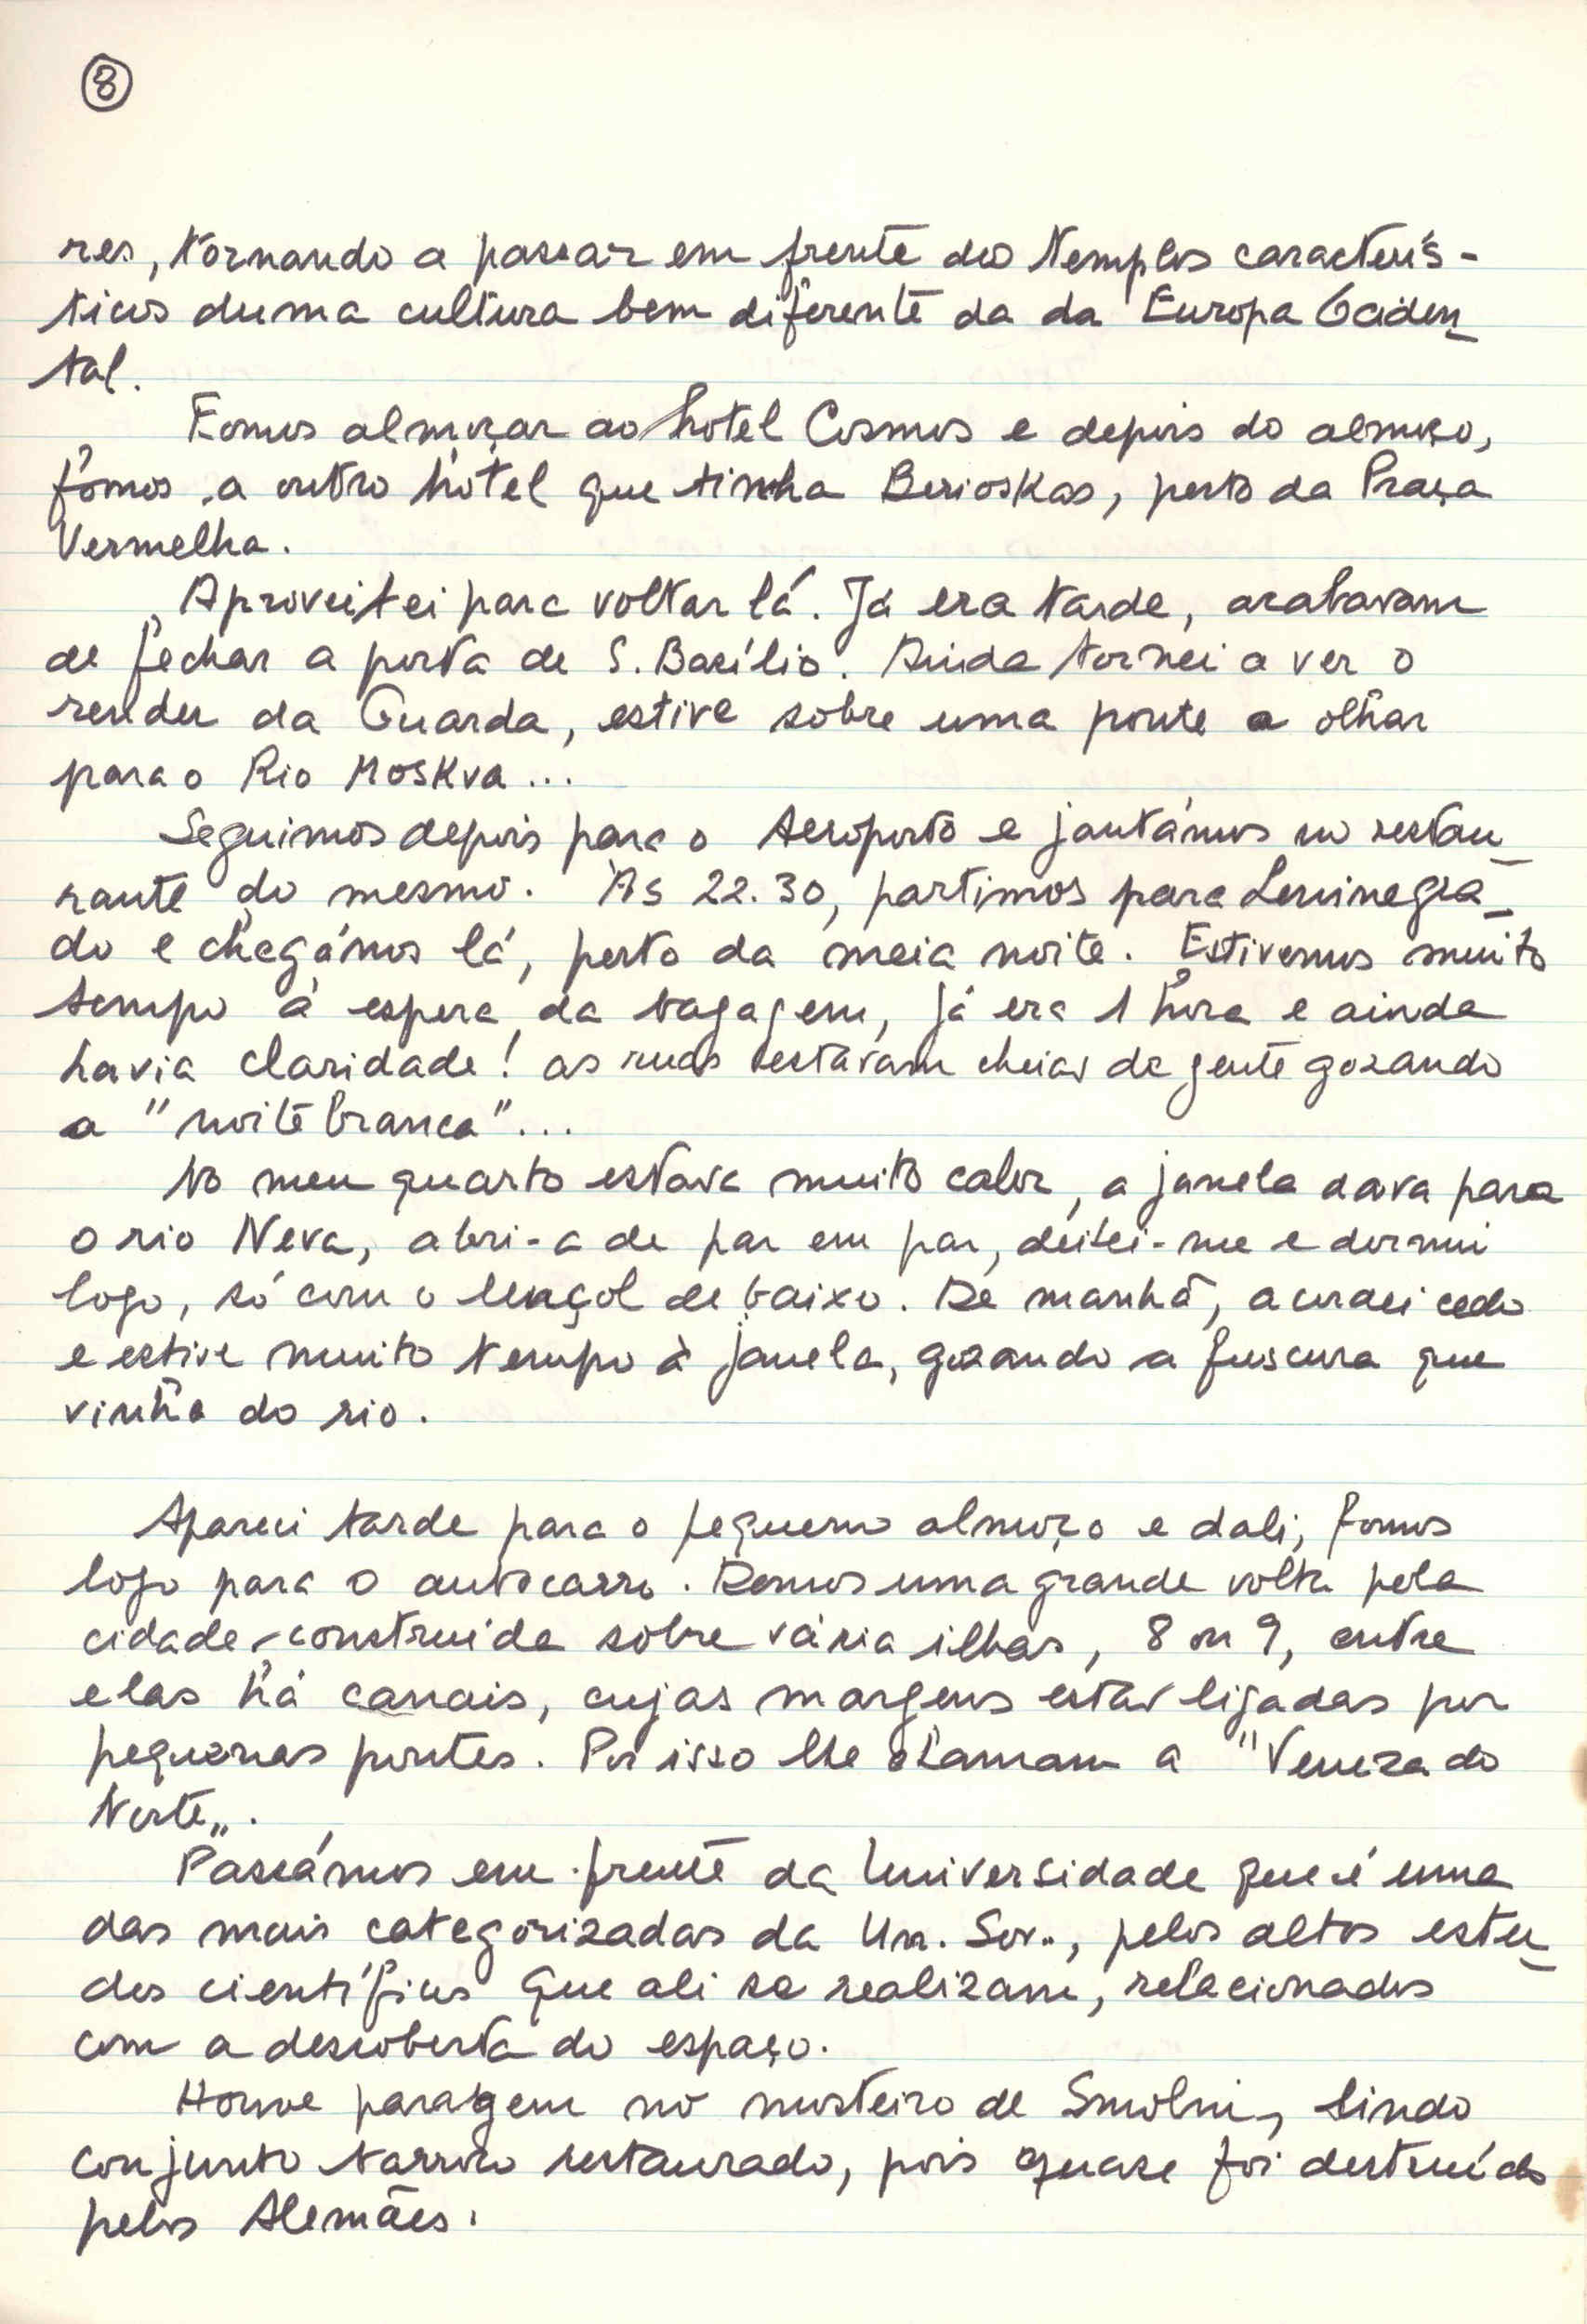 8
res, tornando a passar em frente dos templos caracterís-
ticos duma cultura bem diferente da da Europa Ociden
tal.
Fomos almoçar ao hotel Cosmos e depois do almoço,
fomos a outro hotel que tinha Berioskas, perto da Praça
Vermelha.
Aproveitei para voltar lá. Já era tarde, acabavam
de fechar a porta de S. Basílio. Ainda tornei a ver o
render da Guarda, estive sobre uma ponte a olhar
para o Rio Moskva...
Seguimos depois para o Aeroporto e jantámos no restau
rante do mesmo. Às 22.30, partimos para Leninegra-
do e chegámos lá, perto da meia noite. Estivemos muito
tempo à espera da bagagem, já era 1 hora e ainda
havia claridade! as ruas estavam cheias de gente gozando
a "noite branca"...
No meu quarto estava muito calor, a janela dava para
o rio Neva, abri-a de par em par, deitei-me e dormi
logo, só com o lençol de baixo. De manhã, acordei cedo
e estive muito tempo à janela, gozando a frescura que
vinha do rio.
Apareci tarde para o pequeno almoço e dali, fomos
logo para o autocarro. Demos uma grande volta pela
cidade, construída sobre vária ilhas, 8 ou 9, entre
elas há canais, cujas margens estão ligadas por
pequenas pontes. Por isso lhe chamam a "Veneza do
Norte".
Passámos em frente da Universidade que é uma
das mais categorizadas da Un. Sov., pelos altos estu
dos científicos que ali se realizam, relacionados
com a descoberta do espaço.
Houve paragem no mosteiro de Smolni, lindo
conjunto barroco restaurado, pois quase foi destruído
pelos Alemães.